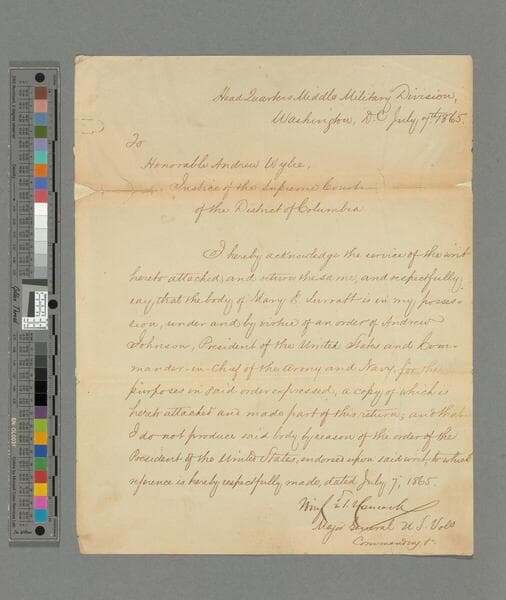 Head Quarters Middle Military Division,
Washington, D.C. July 7th 1865.
To
Honorable Andrew Wylie,
Justice of the Supreme Court
of the District of Columbia
I hereby acknowledge the service of the writ
hereto attached, and return the same, and respectfully
say, that the body of Mary E. Surratt is in my posses-
sion, under and by virtue of an order of Andrew
Johnson, President of the United States and Com-
mander-in-Chief of the Army and Navy, for the
purposes in said order expressed, a copy of which is
hereto attached and made part of this return; and that
I do not produce said body by reason of the order of the
President of the United States, endorsed upon said writ, to which
reference is hereby respectfully made, dated July 7, 1865.
Winf'd S. Hancock
Major General U S Vols
Commanding